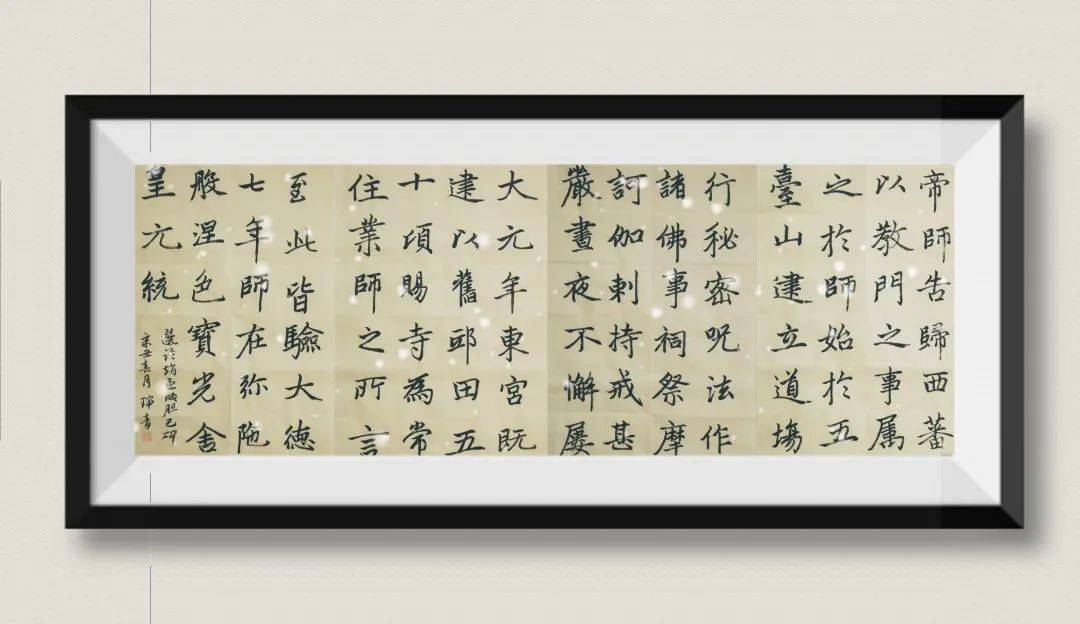 帝師告歸西蕃
以教門之事属
之於師始於五
臺山建立道場
行秘密呪法作
諸佛事祠祭摩
訶伽剌持戒甚
嚴晝夜不懈屡
大元年東宮既
建以舊邸田五
十頃賜寺為常
住業師之所言
至此皆驗大徳
七年師在弥陁
般涅色寶光舍
皇元統
選临趙孟頫胆巴碑
辛丑春月